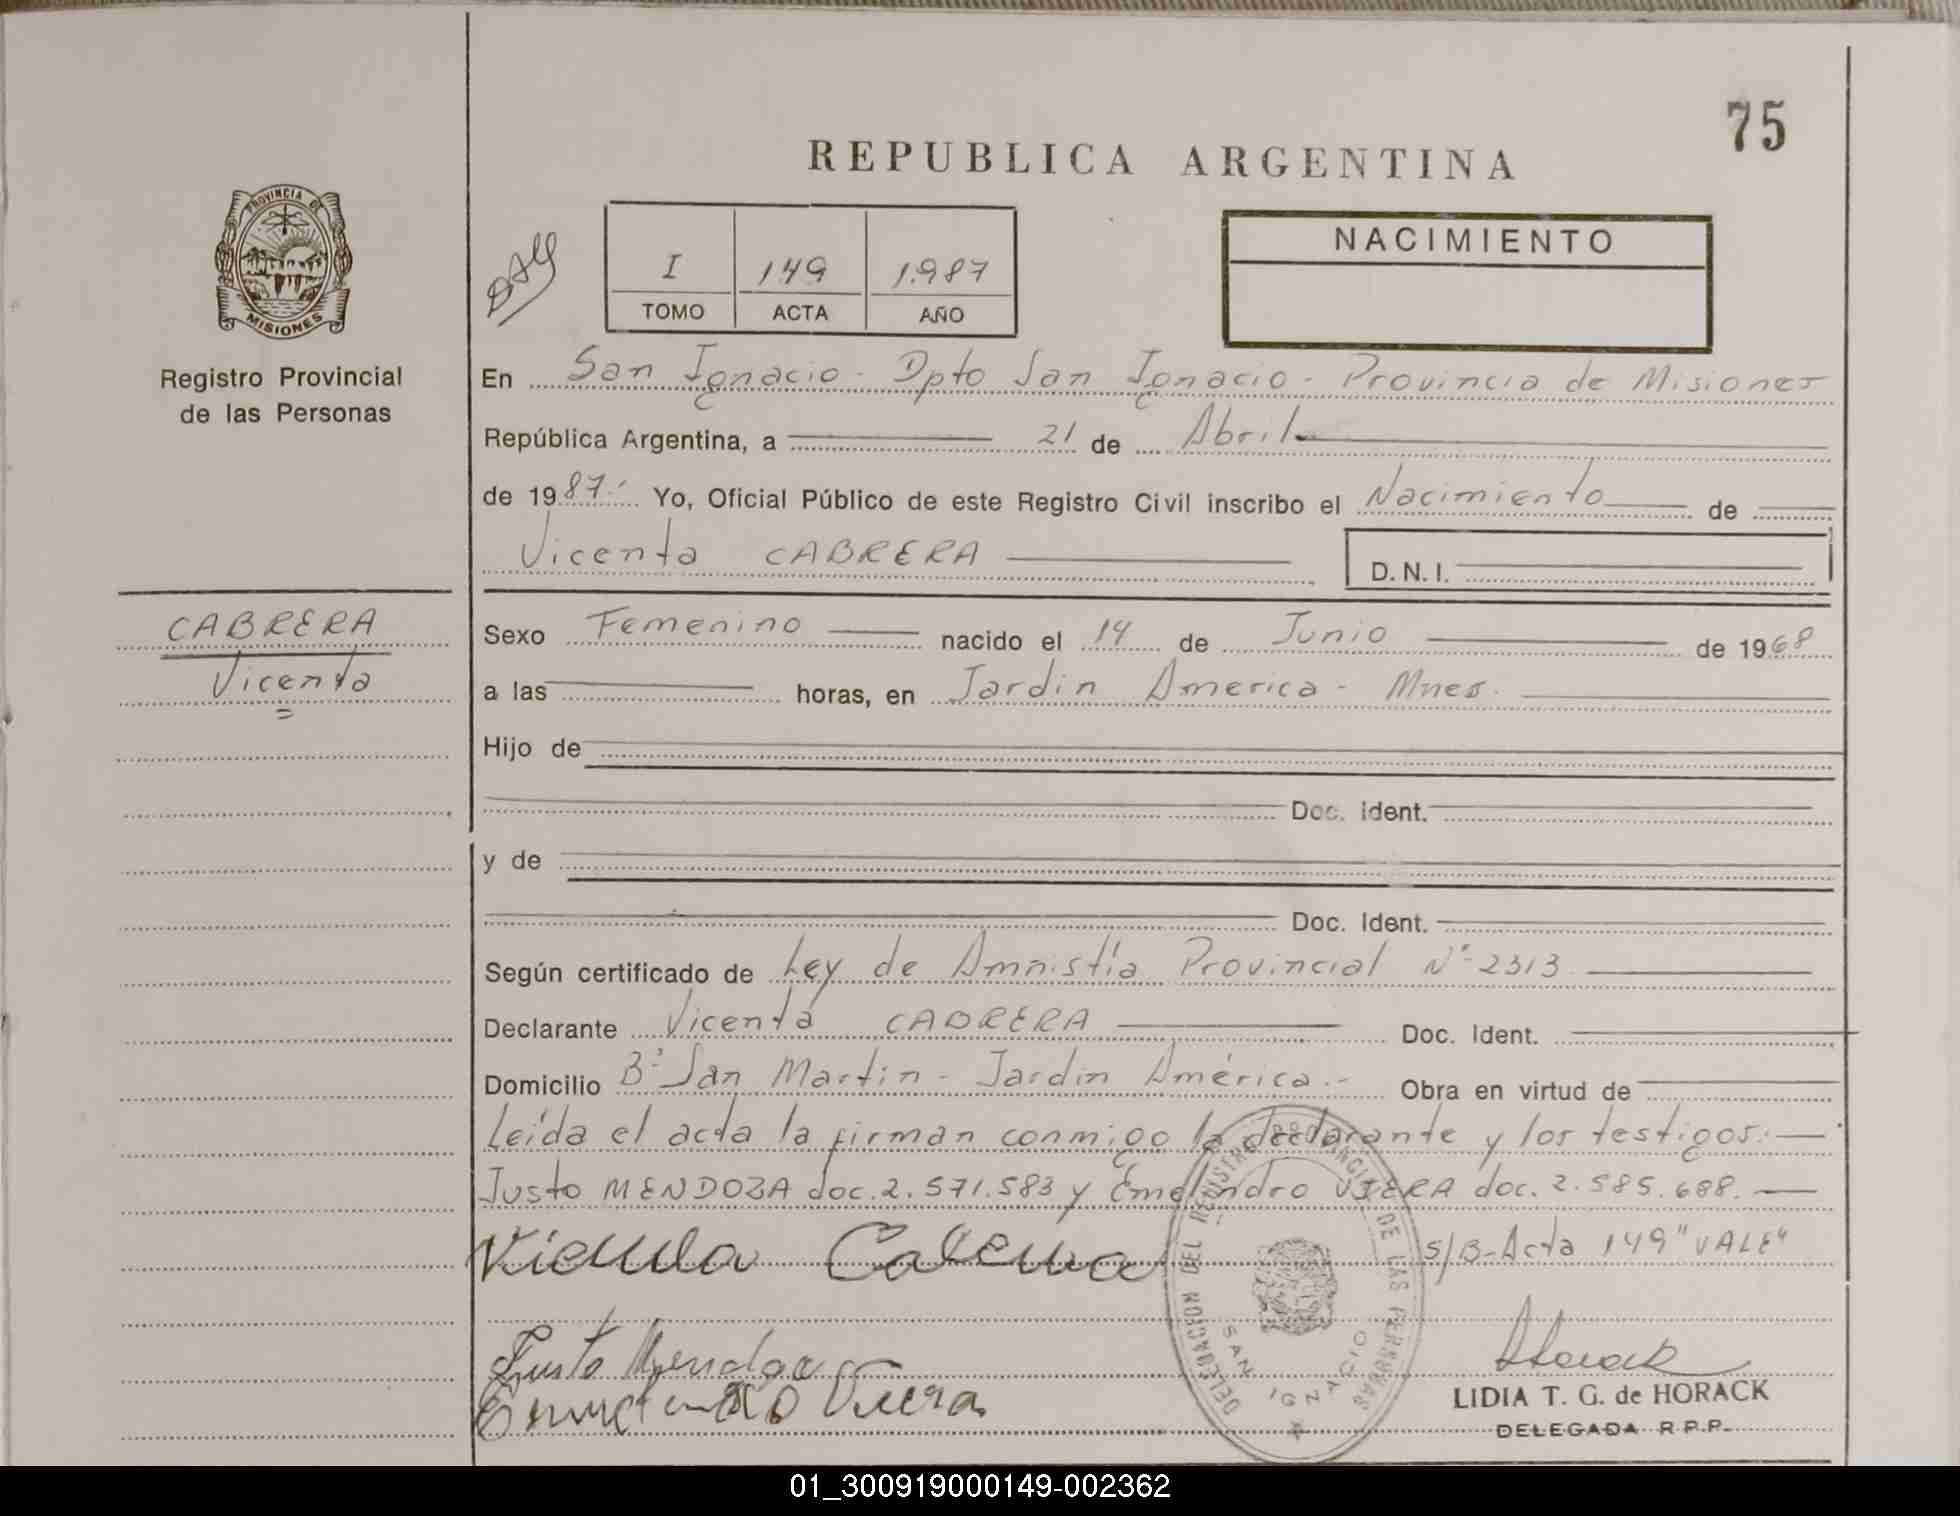 75
REPUBLICA ARGENTINA
PROVINCIA DE
MISIONES
Registro Provincial
de las Personas
I 149 1.987
TOMO ACTA AÑO
NACIMIENTO
En San Ignacio - Dpto San Ignacio - Provincia de Misiones
República Argentina, a 21 de Abril
de 1987.- Yo, Oficial Público de este Registro Civil inscribo el Nacimiento de
Vicenta CABRERA D.N.I.
CABRERA
Vicenta
Sexo Femenino nacido el 14 de Junio de 1968
a las horas, en Jardin America - Mnes.
Hijo de
Doc. Ident.
y de
Doc. Ident.
Según certificado de Ley de Amnistía Provincial Nº 2313
Declarante Vicenta CABRERA Doc. Ident.
Domicilio Bº San Martin - Jardin América.- Obra en virtud de
Leída el acta la firman conmigo la declarante y los testigos:
Justo MENDOZA doc. 2.571.583 y Emelindro VIERA doc. 2.585.688.
S/B-Acta 149 "VALE"
Vicenta Cabrera
Justo Mendoza
Viera
DELEGACION DEL REGISTRO PROVINCIAL DE LAS PERSONAS
SAN IGNACIO
Horack
LIDIA T. G. de HORACK
DELEGADA R.P.P.
01_300919000149-002362